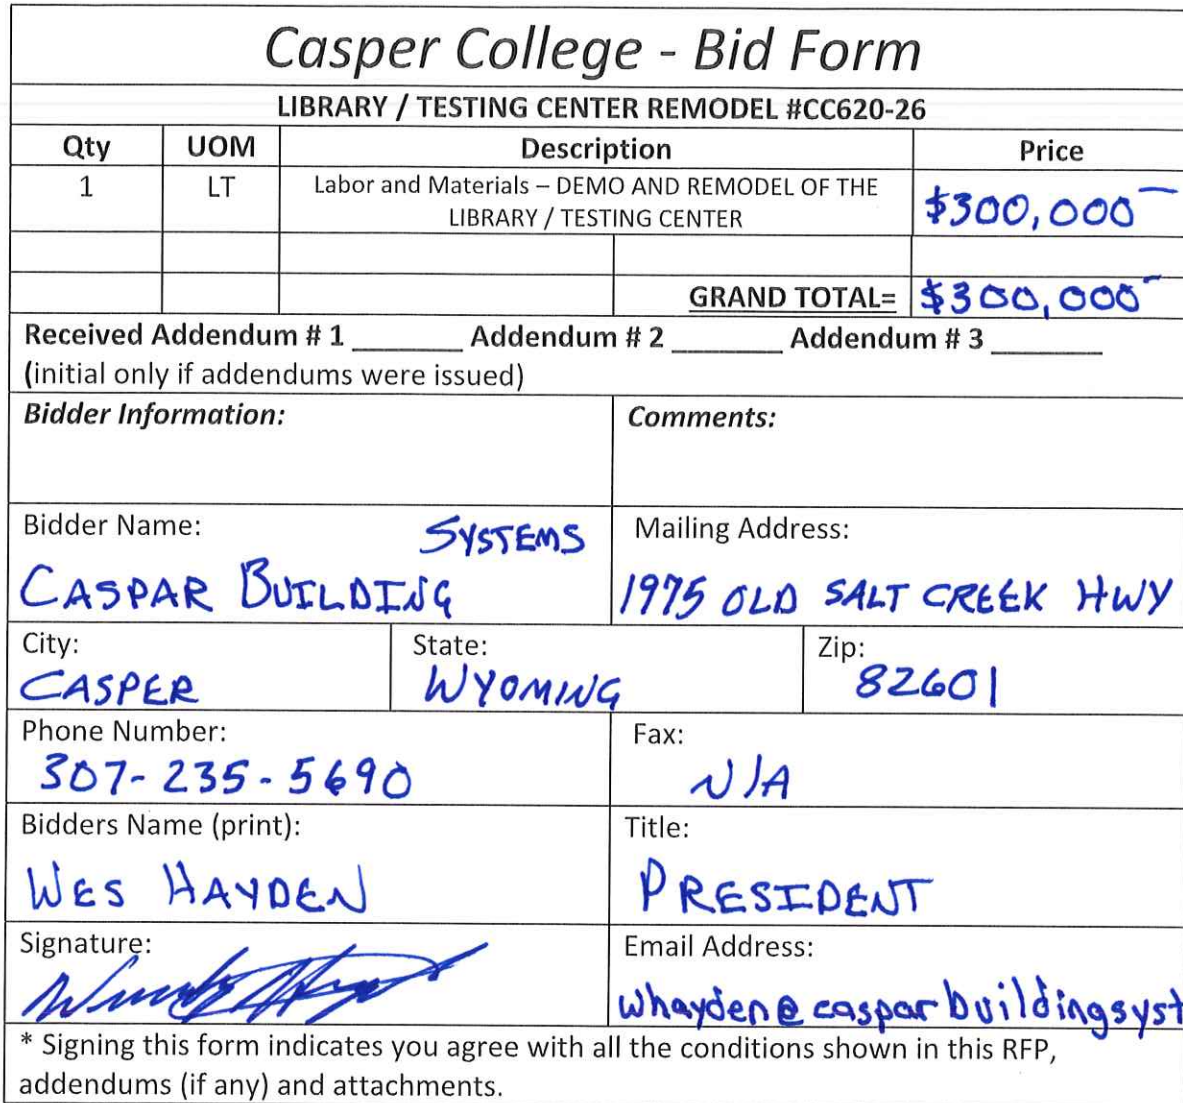 Casper College - Bid Form
LIBRARY / TESTING CENTER REMODEL #CC620-26
Qty UOM Description Price
1 LT Labor and Materials – DEMO AND REMODEL OF THE LIBRARY / TESTING CENTER $300,000—
GRAND TOTAL= $300,000—
Received Addendum # 1 _______ Addendum # 2 _______ Addendum # 3 _______
(initial only if addendums were issued)
Bidder Information: Comments:
Bidder Name: Mailing Address:
SYSTEMS
CASPAR BUILDING 1975 OLD SALT CREEK HWY
City: State: Zip:
CASPER WYOMING 82601
Phone Number: Fax:
307-235-5690 N/A
Bidders Name (print): Title:
WES HAYDEN PRESIDENT
Signature: Email Address:
whayden@casparbuildingsyst
* Signing this form indicates you agree with all the conditions shown in this RFP,
addendums (if any) and attachments.